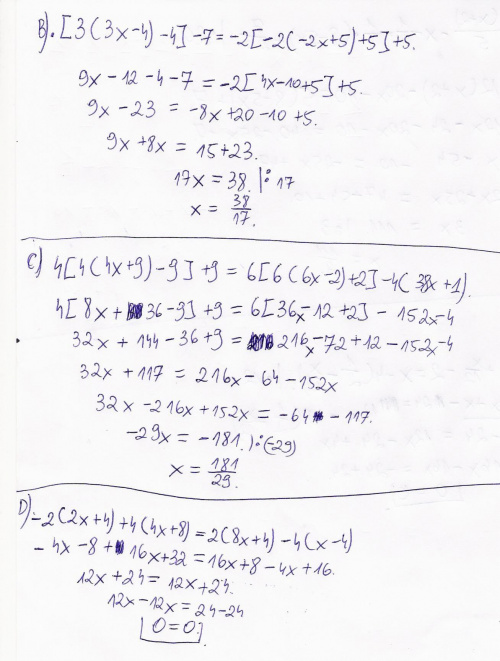 B). [3(3x-4)-4]-7=-2[-2(-2x+5)+5]+5.
9x-12-4-7=-2[4x-10+5]+5.
9x-23=-8x+20-10+5.
9x+8x=15+23.
17x=38. |:17
x=38/17.
C) 4[4(4x+9)-9]+9=6[6(6x-2)+2]-4(38x+1).
4[8x+36-9]+9=6[36x-12+2]-152x-4
32x+144-36+9=216x-72+12-152x-4
32x+117=216x-64-152x
32x-216x+152x=-64-117.
-29x=-181. |:(-29)
x=181/29.
D) -2(2x+4)+4(4x+8)=2(8x+4)-4(x-4)
-4x-8+16x+32=16x+8-4x+16.
12x+24=12x+24.
12x-12x=24-24
0=0.